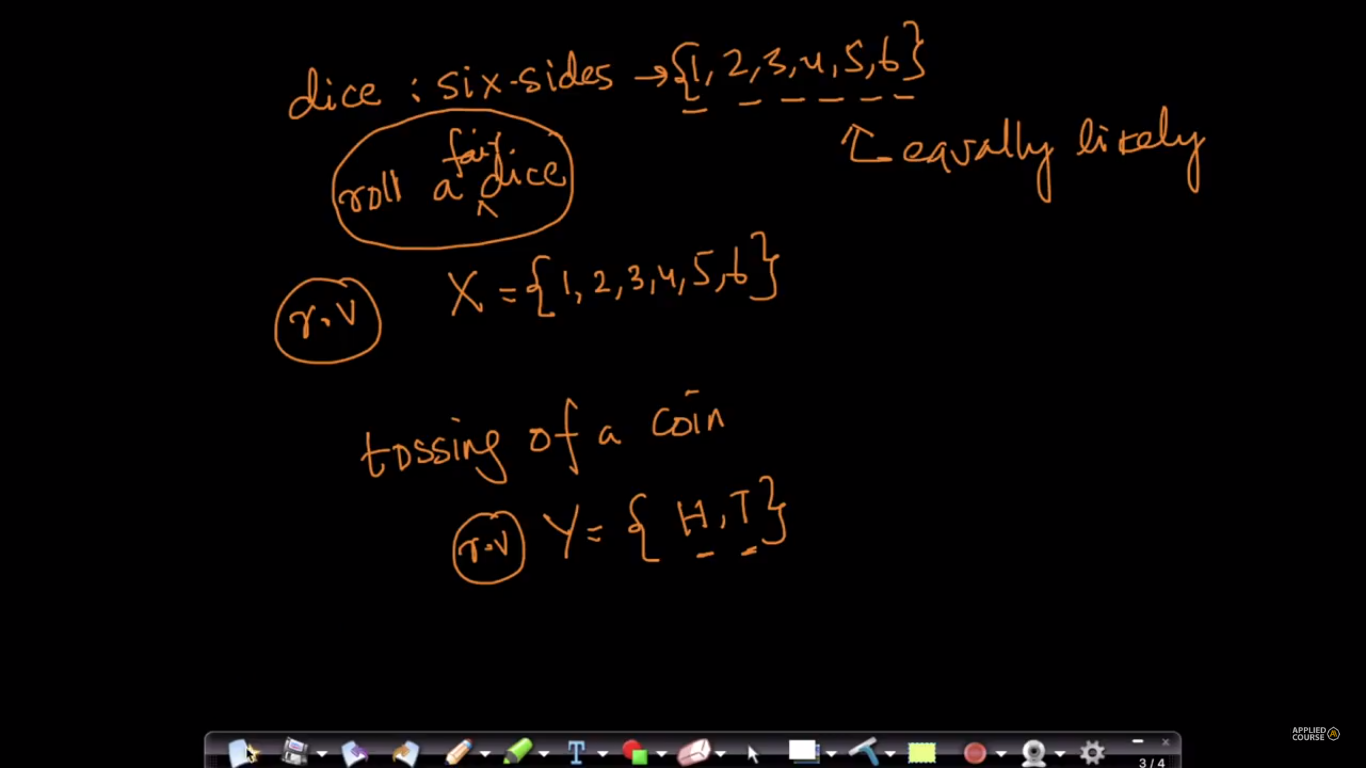 dice : six-sides → {1, 2, 3, 4, 5, 6}
↑ equally likely
roll a fair dice
r.v X = {1, 2, 3, 4, 5, 6}
tossing of a coin
r.v Y = { H, T }
3 / 4
APPLIED
COURSE